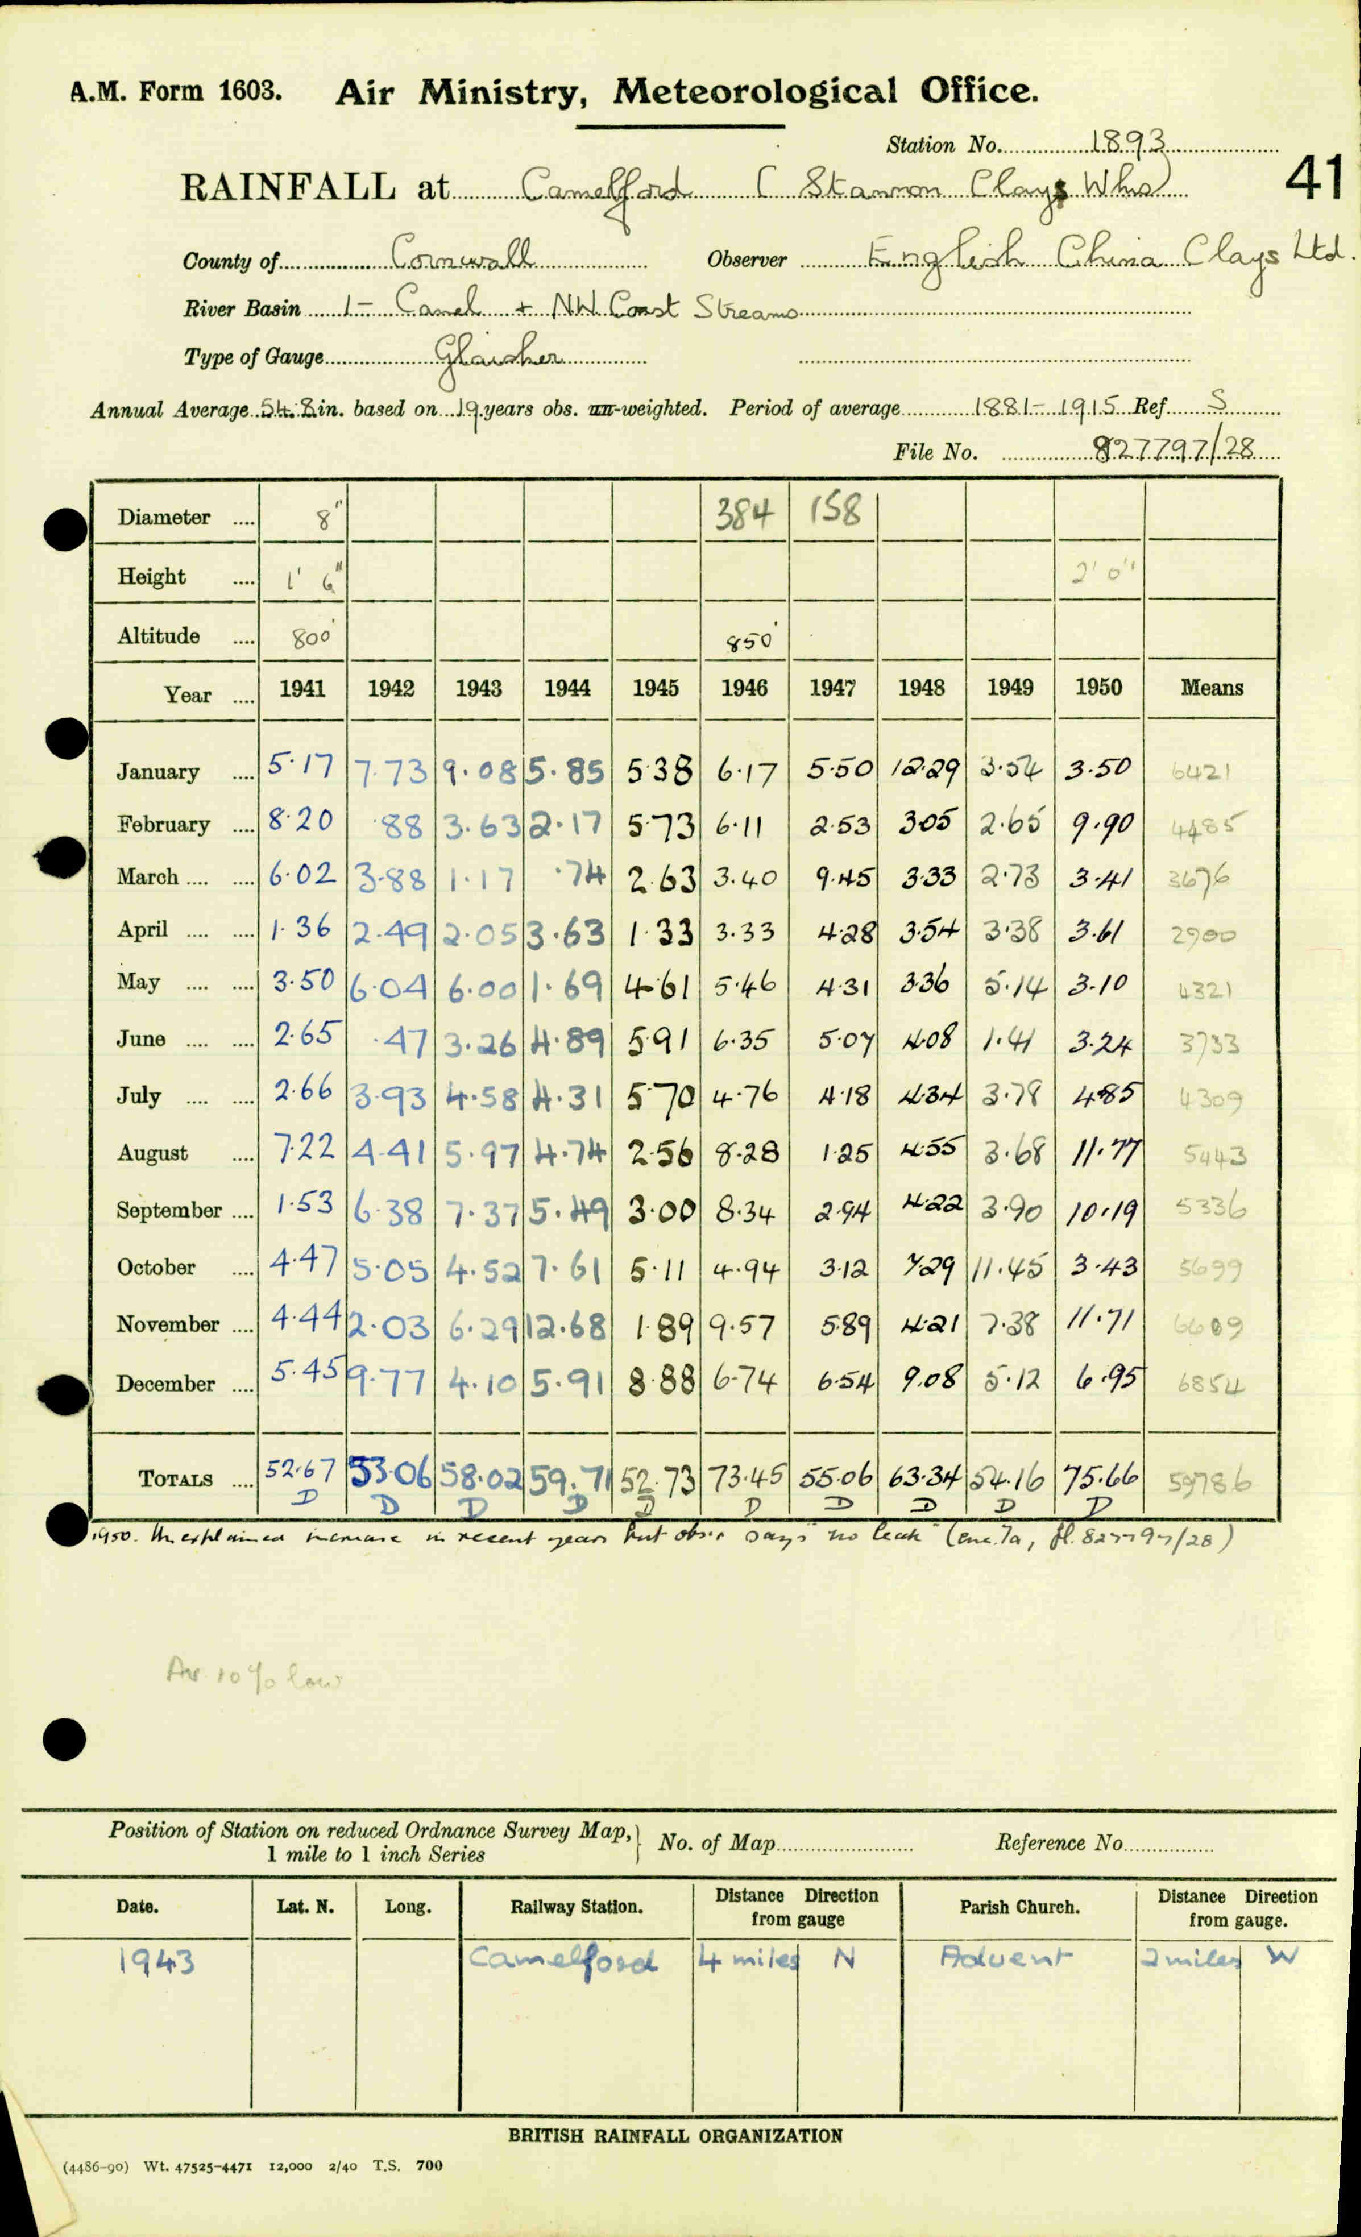 A.M. Form 1603. Air Ministry, Meteorological Office.
Station No. 1893
41
RAINFALL at Camelford ( Stannon Clays Wks)
County of Cornwall Observer English China Clays Ltd.
River Basin 1- Camel + NW Coast Streams
Type of Gauge Glaisher
Annual Average 54.8 in. based on 19 years obs. un-weighted. Period of average 1881-1915 Ref S
File No. 827797/28
Diameter .... 8" 384 158
Height .... 1' 6" 2' 0"
Altitude .... 800' 850'
Year .... 1941 1942 1943 1944 1945 1946 1947 1948 1949 1950 Means
January .... 5.17 7.73 9.08 5.85 5.38 6.17 5.50 12.29 3.54 3.50 6421
February .... 8.20 .88 3.63 2.17 5.73 6.11 2.53 3.05 2.65 9.90 4485
March .... .... 6.02 3.88 1.17 .74 2.63 3.40 9.45 3.33 2.73 3.41 3676
April .... .... 1.36 2.49 2.05 3.63 1.33 3.33 4.28 3.54 3.38 3.61 2900
May .... .... 3.50 6.04 6.00 1.69 4.61 5.46 4.31 3.36 5.14 3.10 4321
June .... .... 2.65 .47 3.26 4.89 5.91 6.35 5.07 4.08 1.41 3.24 3733
July .... .... 2.66 3.93 4.58 4.31 5.70 4.76 4.18 4.34 3.78 4.85 4309
August .... 7.22 4.41 5.97 4.74 2.56 8.28 1.25 4.55 3.68 11.77 5443
September .... 1.53 6.38 7.37 5.49 3.00 8.34 2.94 4.22 3.90 10.19 5336
October .... 4.47 5.05 4.52 7.61 5.11 4.94 3.12 7.29 11.45 3.43 5699
November .... 4.44 2.03 6.29 12.68 1.89 9.57 5.89 4.21 7.38 11.71 6609
December .... 5.45 9.77 4.10 5.91 8.88 6.74 6.54 9.08 5.12 6.95 6854
TOTALS .... 52.67 53.06 58.02 59.71 52.73 73.45 55.06 63.34 54.16 75.66 59786
D D D D D D D D D D
1950. Unexplained increase in recent years but obsr says "no leak" (enc. 7a, fl. 827797/28)
Av 10% low
Position of Station on reduced Ordnance Survey Map, 1 mile to 1 inch Series } No. of Map Reference No.
Date. Lat. N. Long. Railway Station. Distance Direction from gauge Parish Church. Distance Direction from gauge.
1943 Camelford 4 miles N Advent 2 miles W
BRITISH RAINFALL ORGANIZATION
(4486-90) Wt. 47525-4471 12,000 2/40 T.S. 700